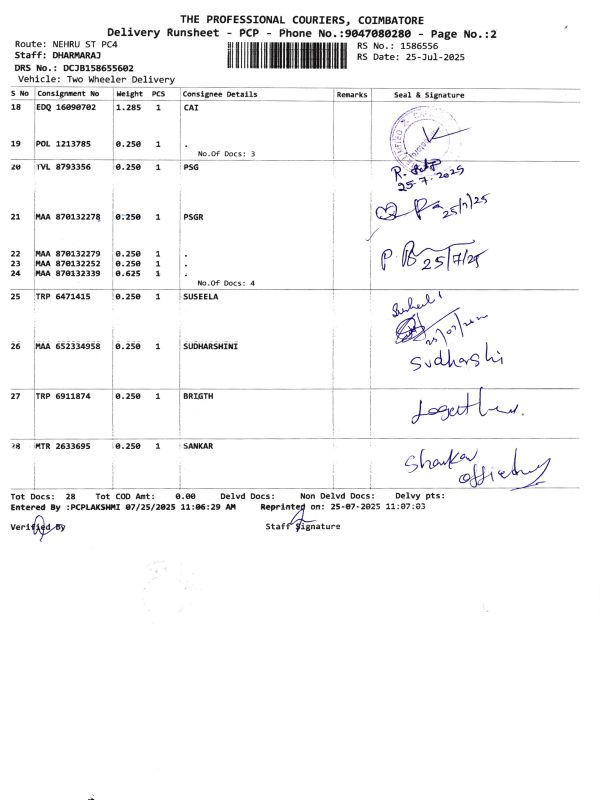 THE PROFESSIONAL COURIERS, COIMBATORE
Delivery Runsheet - PCP - Phone No.:9047080280 - Page No.:2
Route: NEHRU ST PC4
RS No.: 1586556
Staff: DHARMARAJ
RS Date: 25-Jul-2025
DRS No.: DCJB158655602
Vehicle: Two Wheeler Delivery
S No Consignment No Weight PCS Consignee Details Remarks Seal & Signature
18 EDQ 16090702 1.285 1 CAI
19 POL 1213785 0.250 1 .
No.Of Docs: 3
20 TVL 8793356 0.250 1 PSG
25.7.2025
21 MAA 870132278 0.250 1 PSGR
25/7/25
22 MAA 870132279 0.250 1 .
23 MAA 870132252 0.250 1 .
25/7/25
24 MAA 870132339 0.625 1 .
No.Of Docs: 4
25 TRP 6471415 0.250 1 SUSEELA
26 MAA 652334958 0.250 1 SUDHARSHINI
27 TRP 6911874 0.250 1 BRIGTH
28 MTR 2633695 0.250 1 SANKAR
Tot Docs: 28 Tot COD Amt: 0.00 Delvd Docs: Non Delvd Docs: Delvy pts:
Entered By :PCPLAKSHMI 07/25/2025 11:06:29 AM Reprinted on: 25-07-2025 11:07:03
Verified By Staff Signature